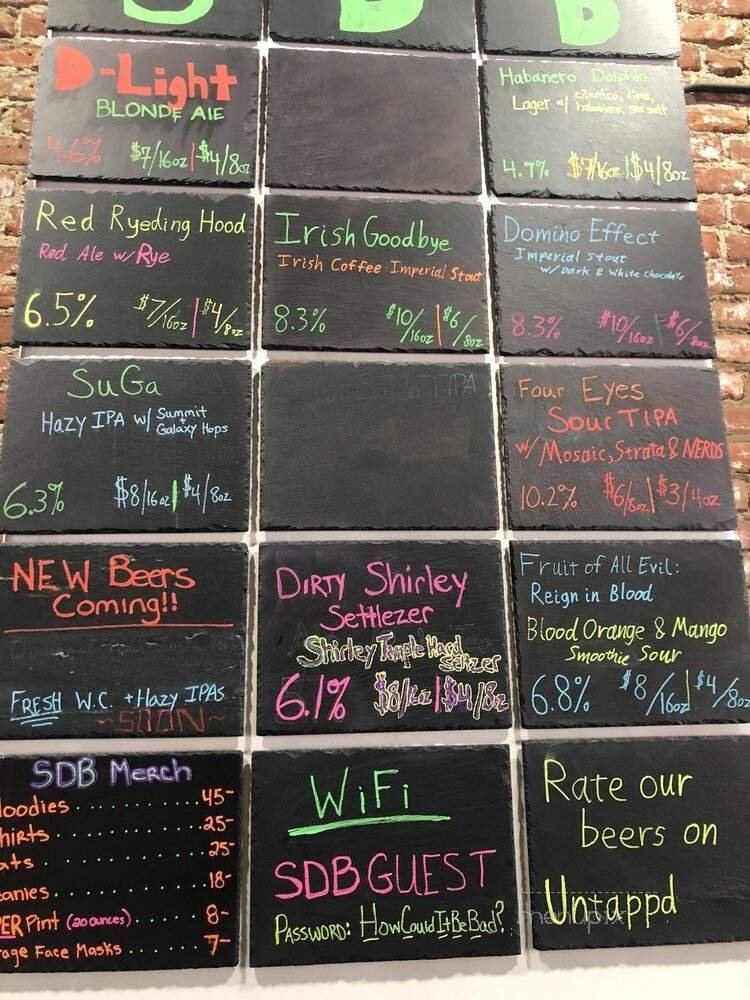 SDB
D-Light
BLONDE ALE
4.6% $7/16oz | $4/8oz
Habanero Dolphin
Lager w/ cilantro, lime,
habanero, sea salt
4.7% $7/16oz | $4/8oz
Red Ryeding Hood
Red Ale w/Rye
6.5% $7/16oz | $4/8oz
Irish Goodbye
Irish Coffee Imperial Stout
8.3% $10/16oz | $6/8oz
Domino Effect
Imperial Stout
w/Dark & White Chocolate
8.3% $10/16oz | $6/8oz
SuGa
Hazy IPA w/ Summit +
Galaxy Hops
6.3% $8/16oz | $4/8oz
TIPA
Four Eyes
Sour TIPA
w/ Mosaic, Strata & NERDS
10.2% $6/8oz | $3/4oz
NEW Beers
Coming!!
FRESH W.C. + Hazy IPAS
~SOON~
DIRTY Shirley
Settlezer
Shirley Temple Hard
Seltzer
6.1% $8/16oz | $4/8oz
Fruit of All Evil:
Reign in Blood
Blood Orange & Mango
Smoothie Sour
6.8% $8/16oz | $4/8oz
SDB Merch
oodies ........... 45-
hirts ........... 25-
ats ........... 25-
eanies ........... 18-
PER Pint (20 ounces) ....... 8-
rage Face Masks ... 7-
WiFi
SDBGUEST
PASSWORD: HowCouldItBeBad?
Rate our
beers on
Untappd
menupix